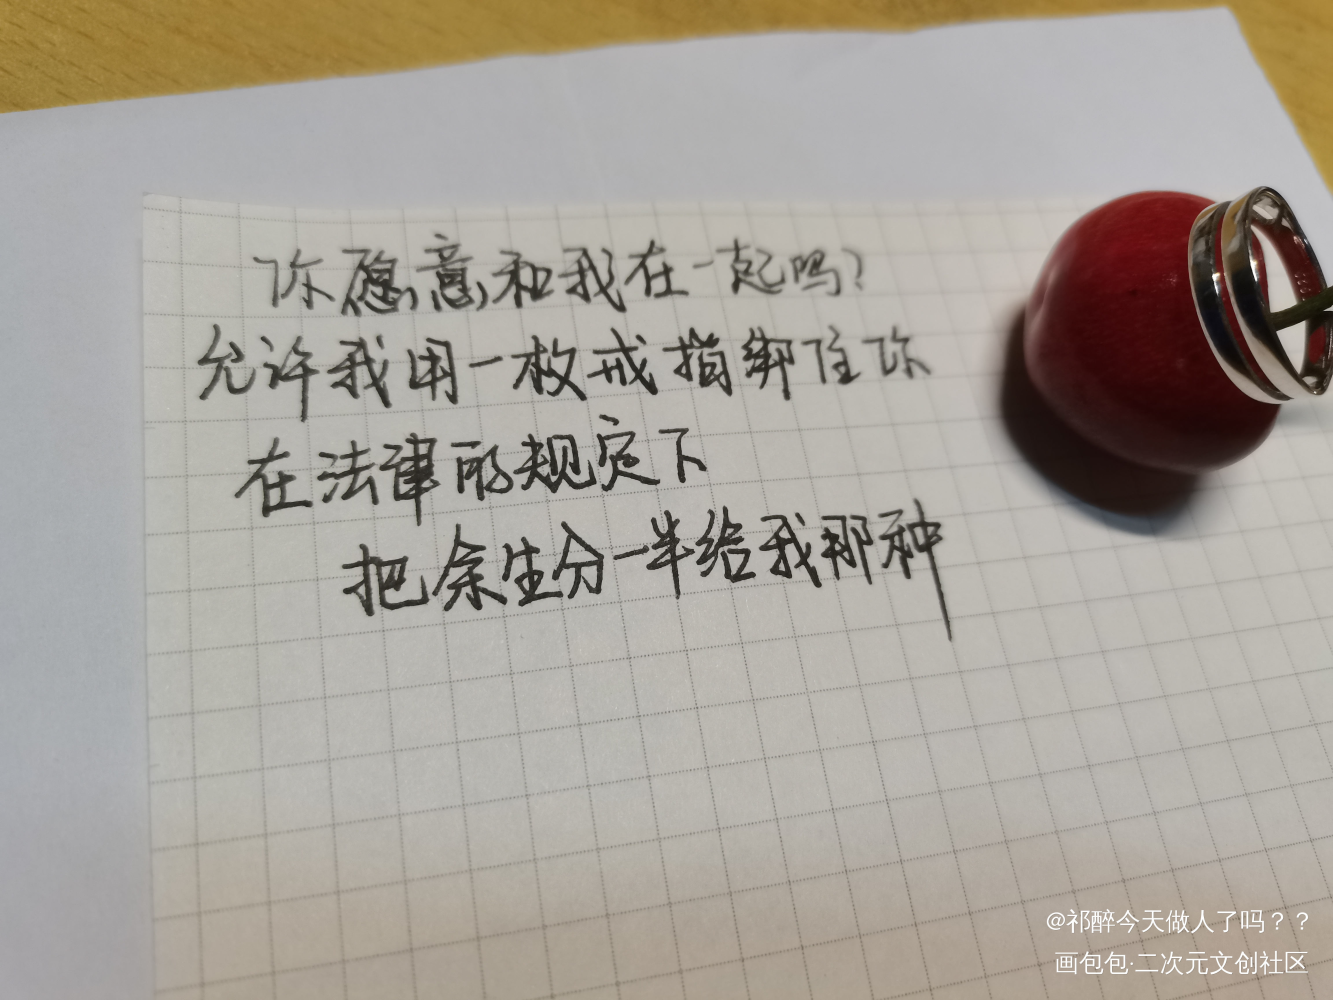 你愿意和我在一起吗?
允许我用一枚戒指绑住你
在法律的规定下
把余生分一半给我那种
@祁醉今天做人了吗？？
画包包·二次元文创社区